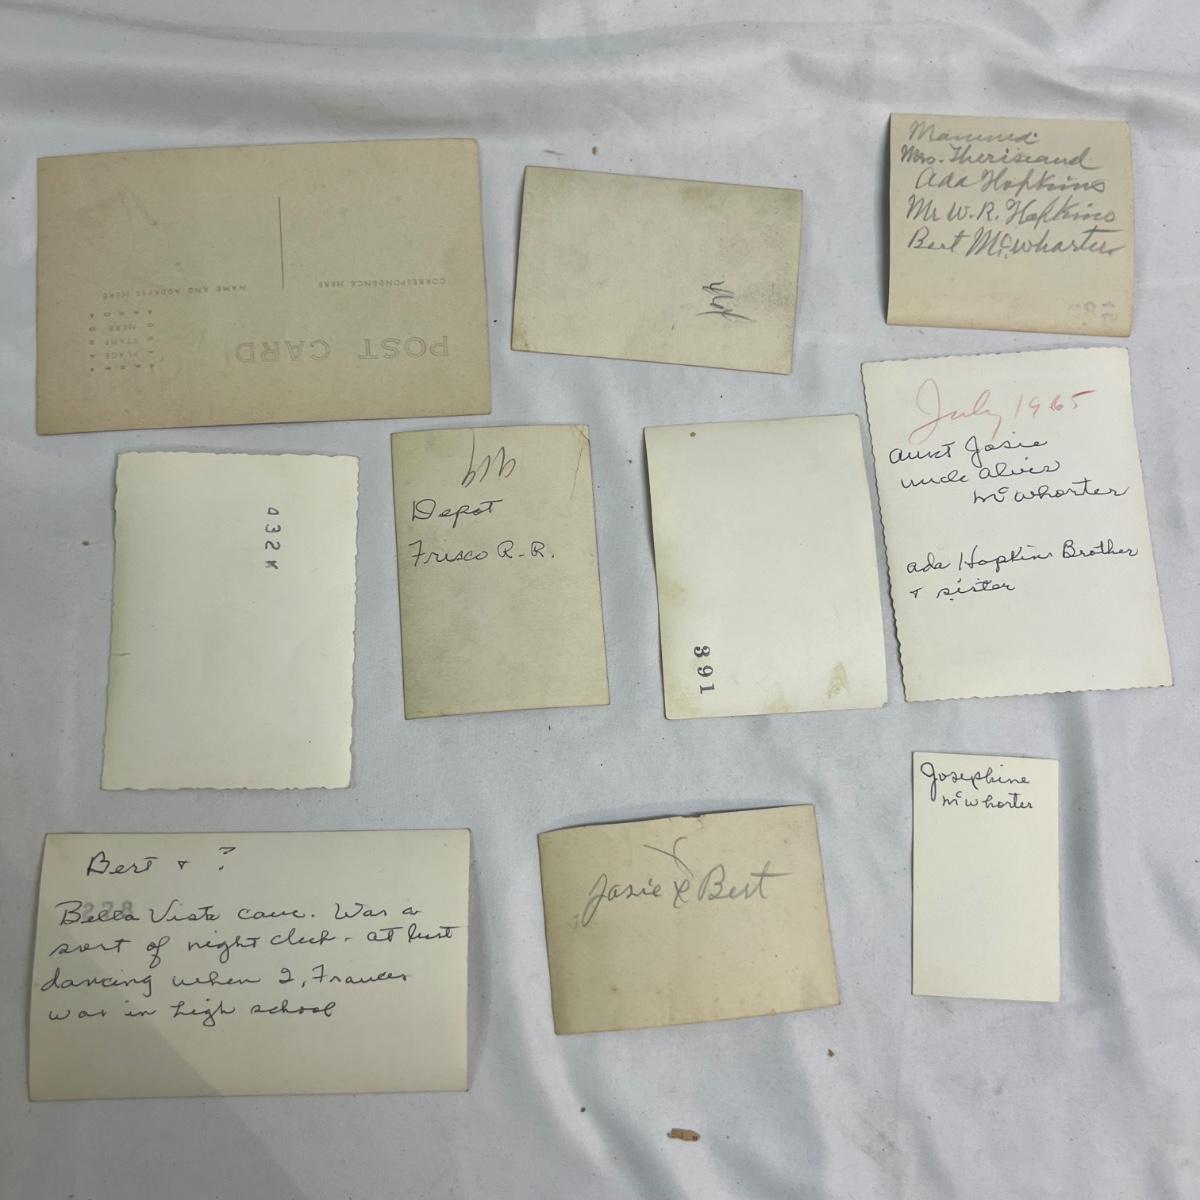 CORRESPONDENCE HERE
NAME AND ADDRESS HERE
POST CARD
PLACE
STAMP
HERE
Mrs.
Ada Hopkins
Mr W. R. Hopkins
Bert McWhorter
July 1965
Aunt Josie
uncle Alvis
McWhorter
Ada Hopkins Brother
+ sister
432K
Depot
Frisco R.R.
391
Bert + ?
228
Bella Vista cave. Was a
sort of night club - at least
dancing when I, Frances
was in high school
Josie & Bert
Josephine
McWhorter